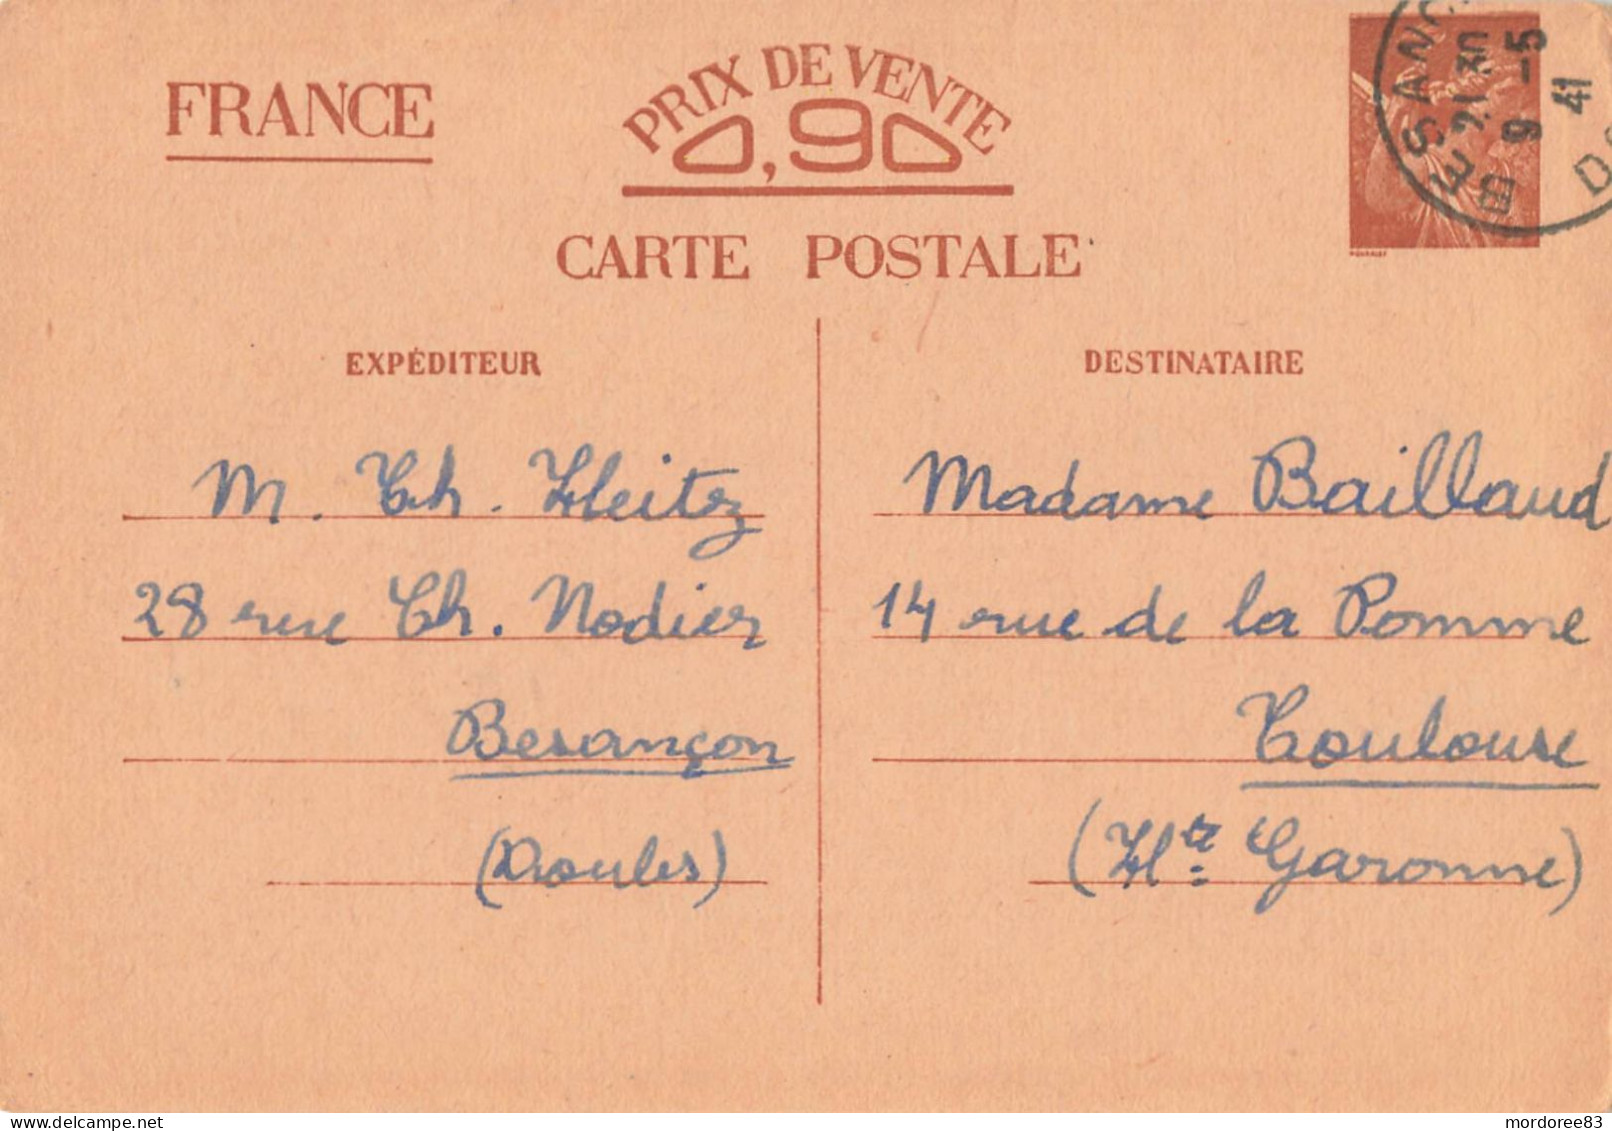 FRANCE
PRIX DE VENTE
0,90
CARTE POSTALE
BESANÇ
21 30
9 -5
41
DO
EXPÉDITEUR
M. Ch. Heitz
28 rue Ch. Nodier
Besançon
(Doubs)
DESTINATAIRE
Madame Baillaud
14 rue de la Pomme
Toulouse
(Hte Garonne)
www.delcampe.net
mordoree83